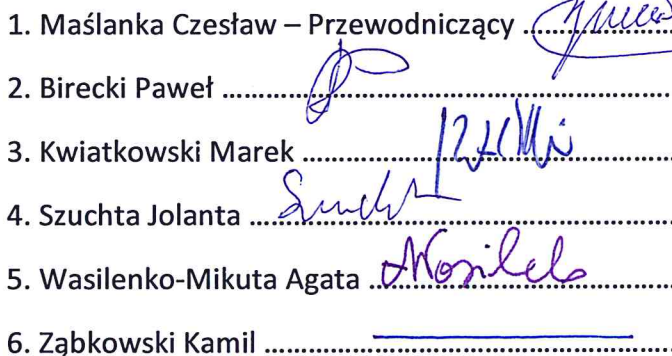 1. Maślanka Czesław – Przewodniczący ....................
2. Birecki Paweł ............................................................
3. Kwiatkowski Marek .................................................
4. Szuchta Jolanta ........................................................
5. Wasilenko-Mikuta Agata ........................................
6. Ząbkowski Kamil .....................................................